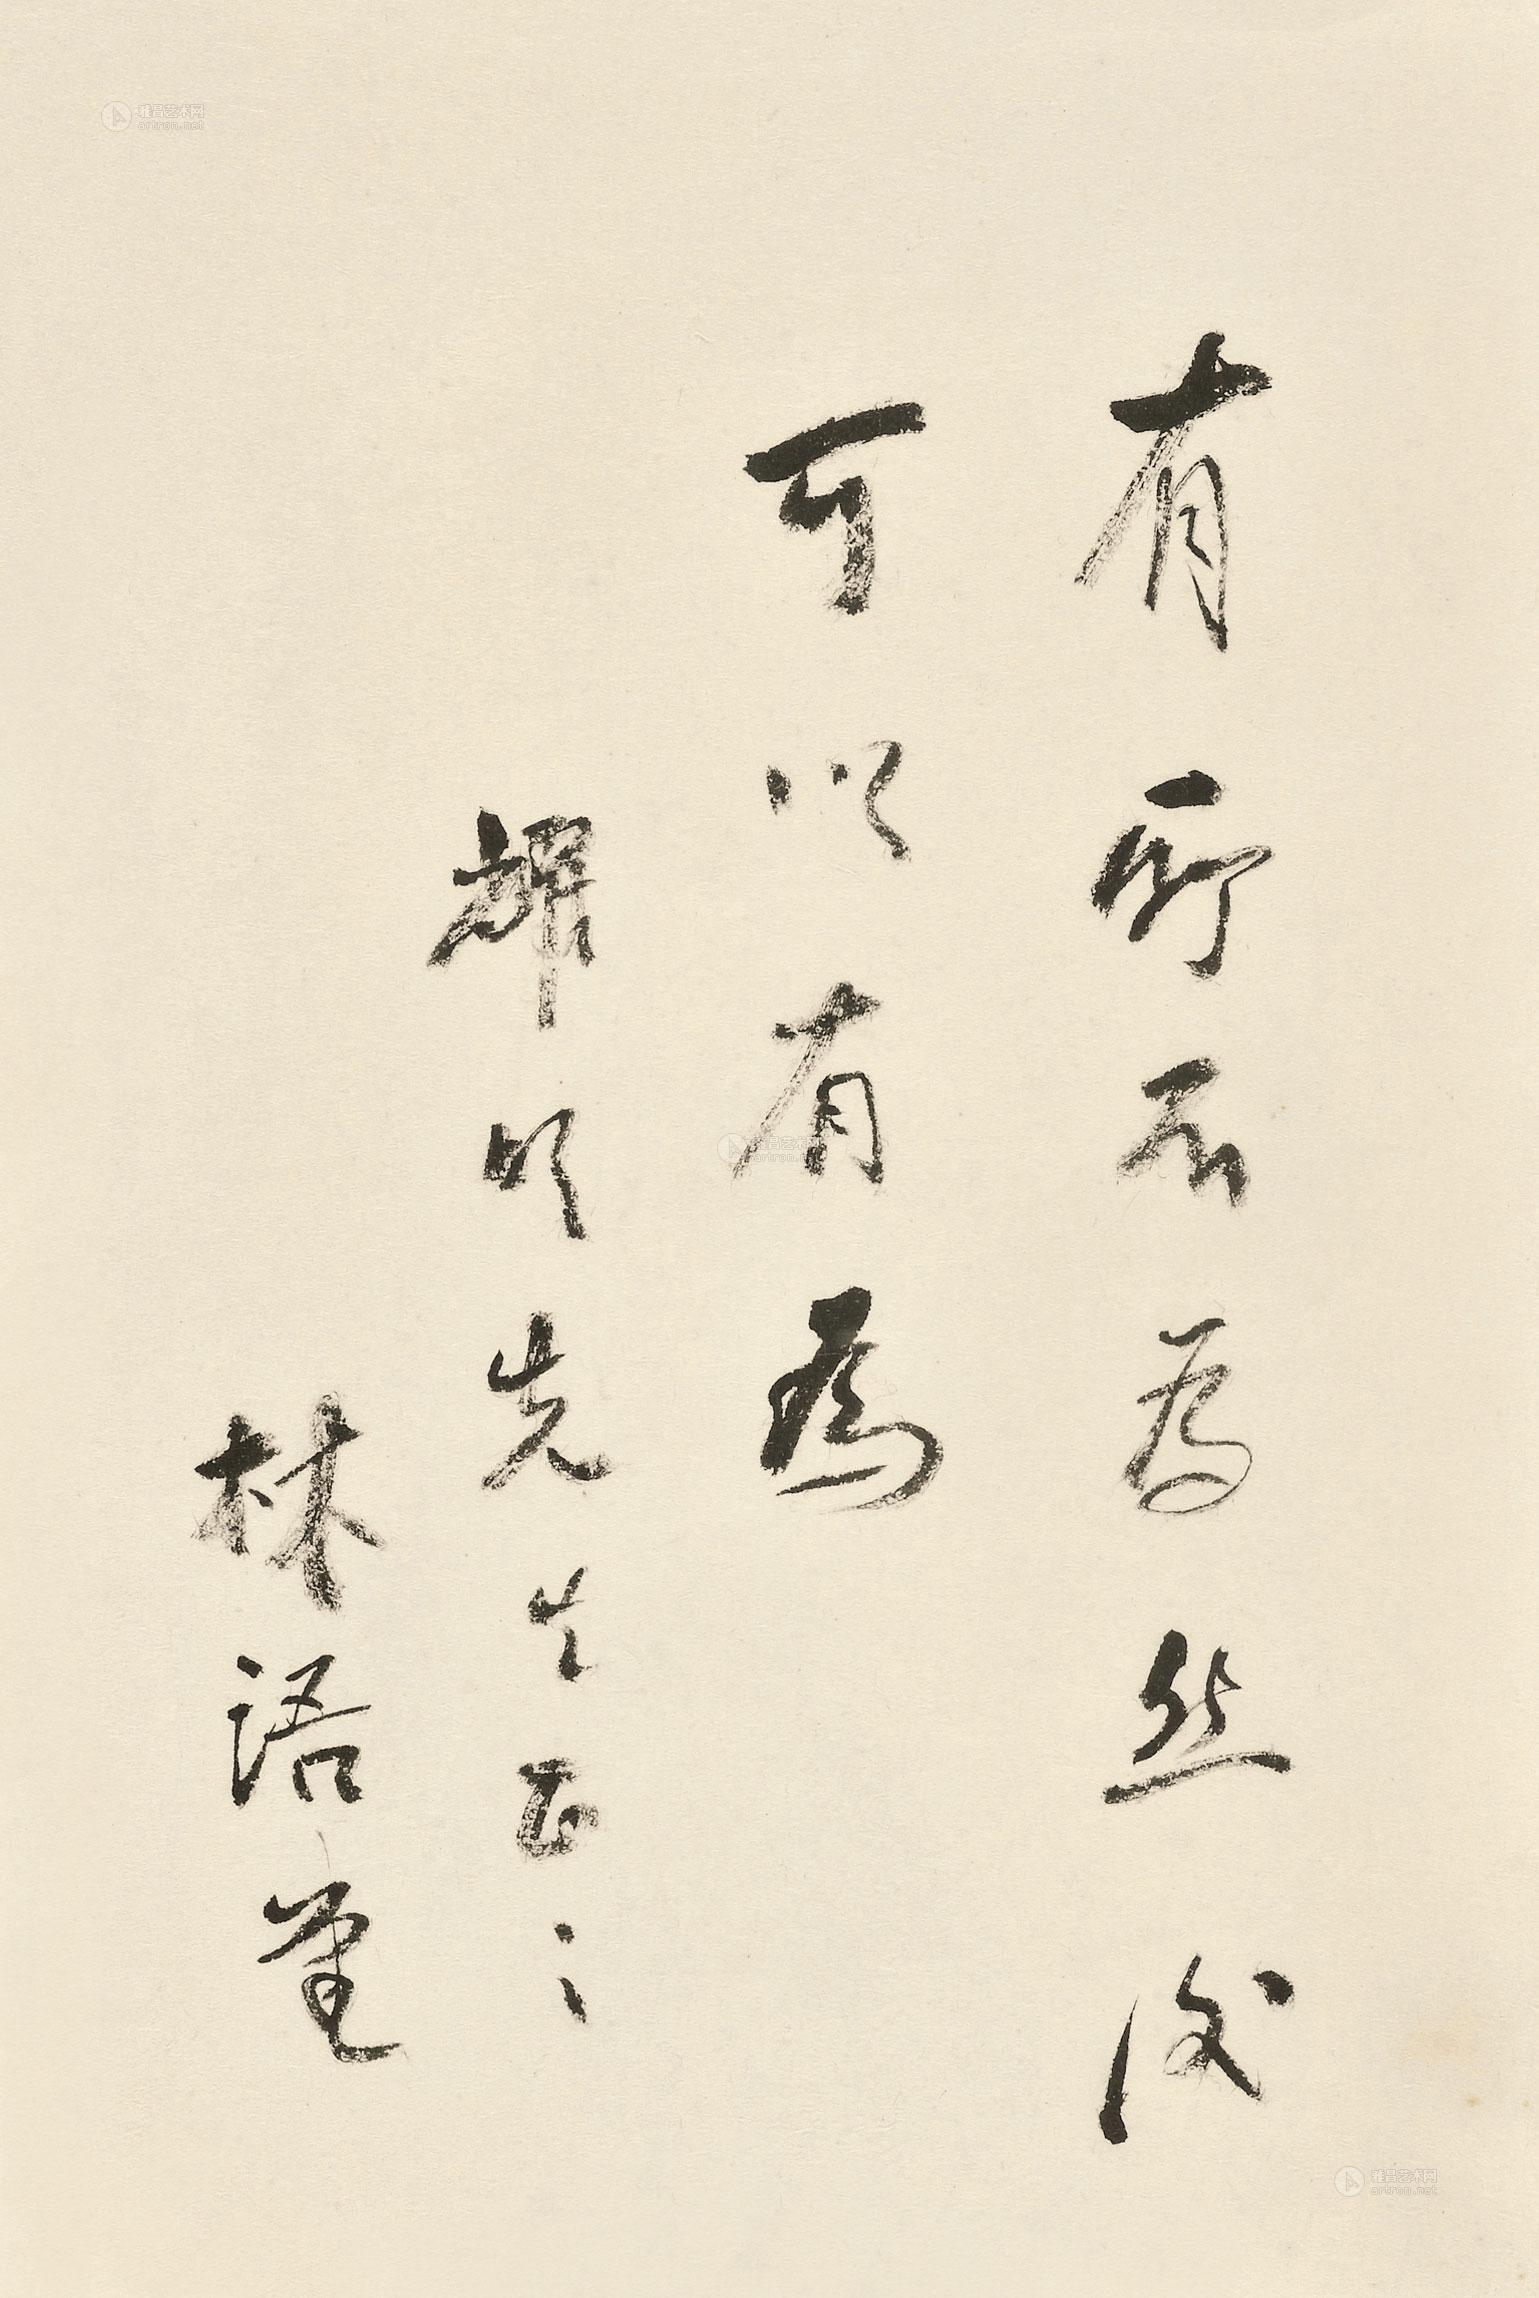 有所不為然後
可以有為
輝明先生正之
林語堂
雅昌艺术网
artron.net
雅昌艺术网
artron.net
雅昌艺术网
artron.net